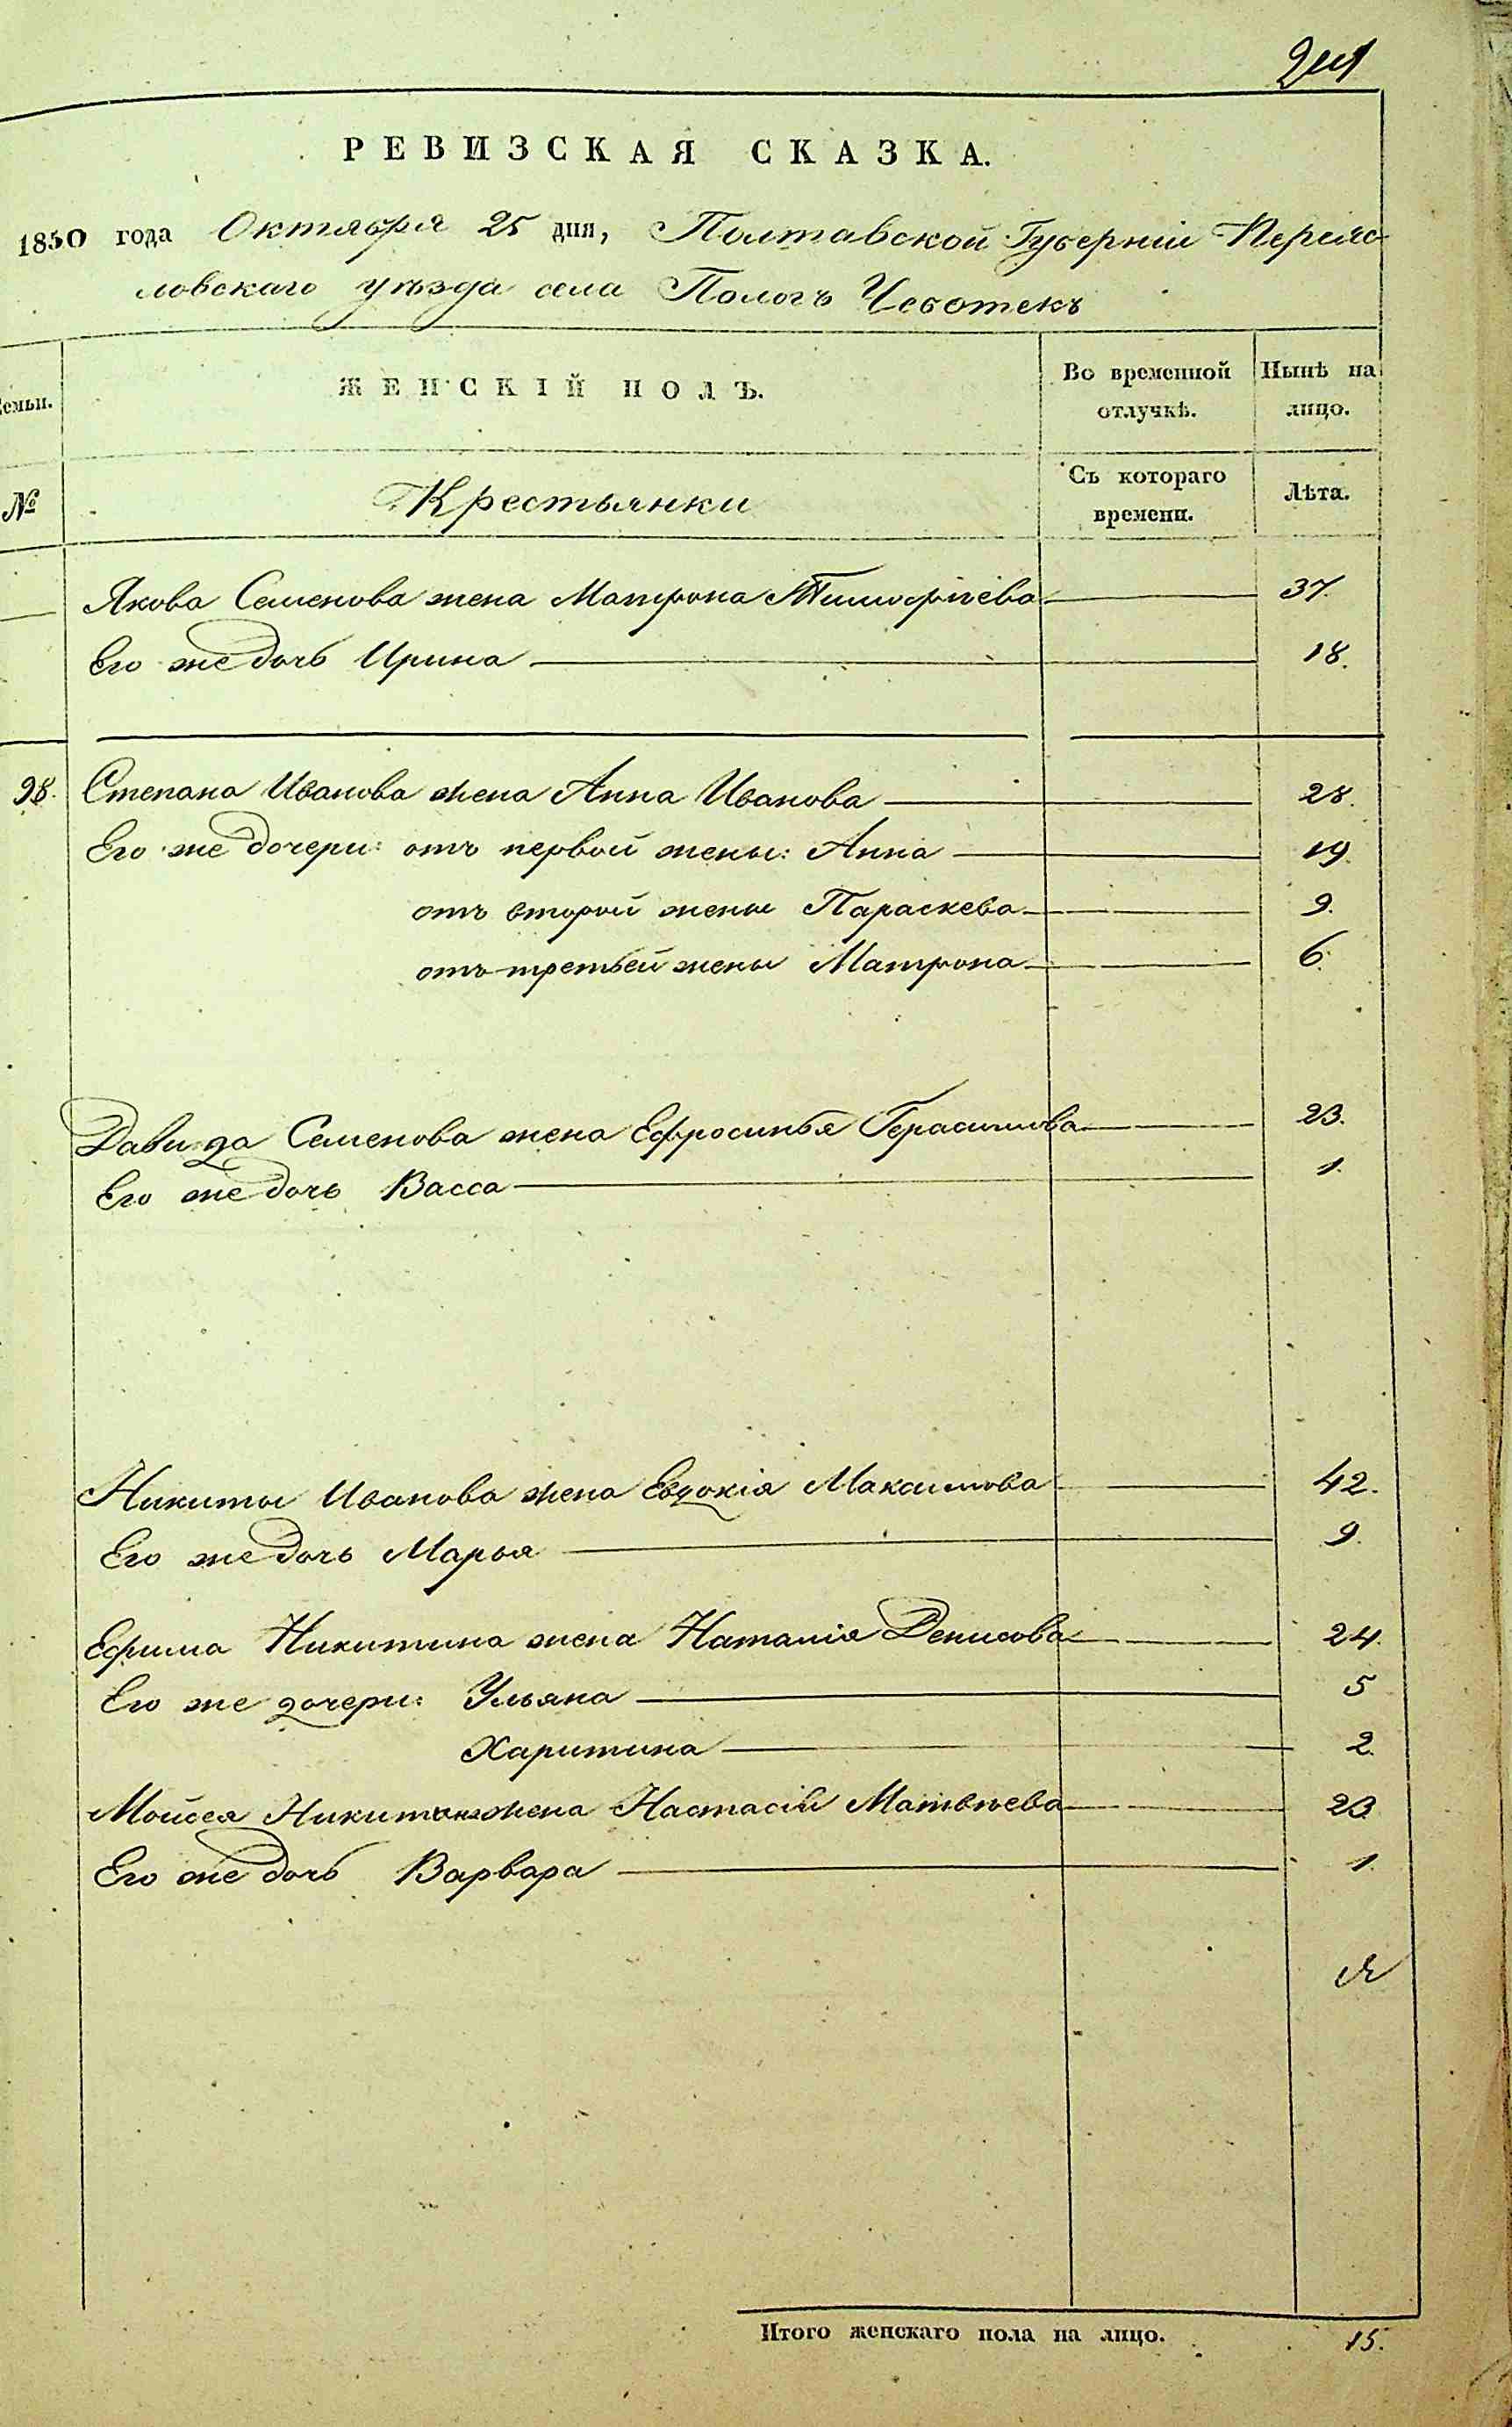 РЕВИЗСКАЯ СКАЗКА.
1850 года Октября 25 дня, Полтавской Губерніи Переяс-
ловскаго уѣзда села Пологъ Чеботекъ
Семьи.
ЖЕНСКІЙ ПОЛЪ.
Во временной отлучкѣ.
Нынѣ на лицо.
№
Крестьянки
Съ котораго времени.
Лѣта.
Якова Семенова жена Матрона Тимофіева 37.
Его же дочь Ирина 18.
98. Степана Иванова жена Анна Иванова 28.
Его же дочери: отъ первой жены: Анна 19.
отъ второй жены Параскева 9.
отъ третьей жены Матрона 6.
Давида Семенова жена Ефросинья Герасимова 23.
Его же дочь Васса 1.
Никиты Иванова жена Евдокія Максимова 42.
Его же дочь Марья 9.
Ефима Никитина жена Наталія Денисова 24.
Его же дочери: Ульяна 5
Харитина 2.
Мойсея Никитина жена Настасія Матвѣева 23
Его же дочь Варвара 1.
Итого женскаго пола на лицо. 15.